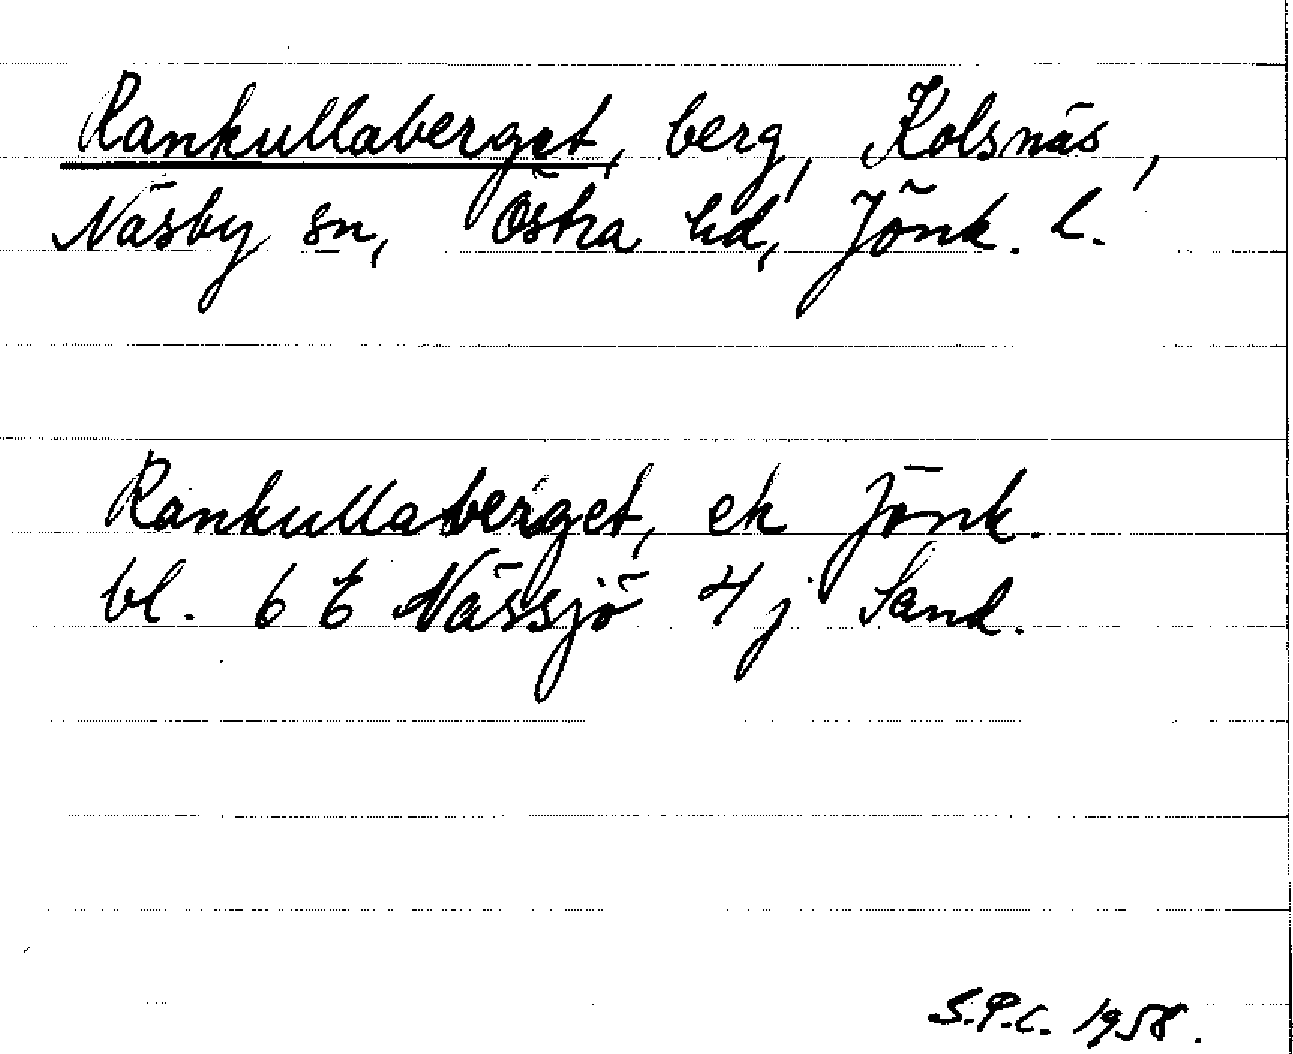 Rankullaberget, berg, Kolsnäs,
Näsby sn, Östra hd, Jönk. l.
Rankullaberget, ek Jönk.
bl. 6 E Nässjö 4 j Sand.
S.P.C. 1958.